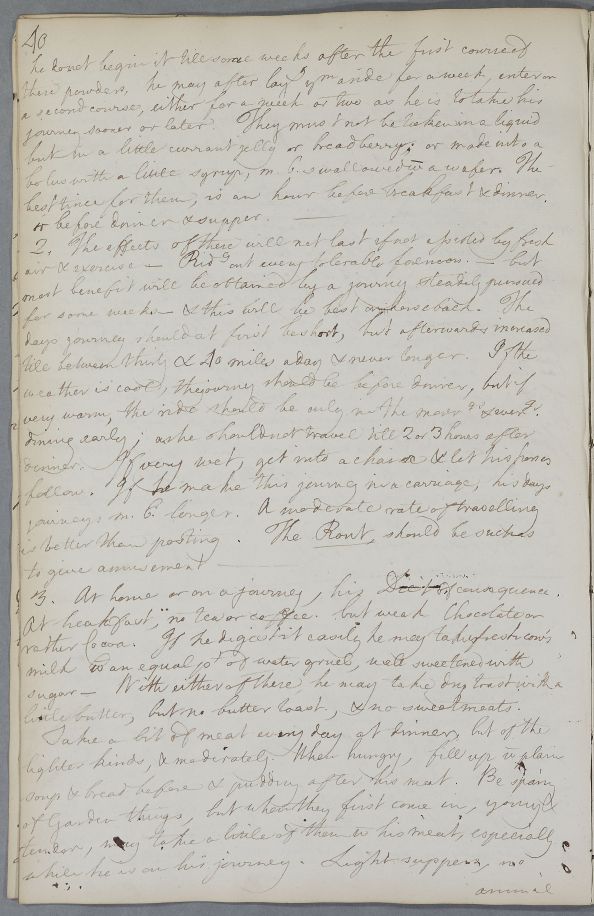 40
he do not begin it till some weeks after the first course of
these powders, he may after lay^g y^m aside for a week, enter on
a second course, either for a week or two as he is to take his
journey sooner or later. They must not be taken in a liquid
but in a little currant jelly or breadberry; or made into a
bolus with a little syrup, m. b. swallowed in a wafer. The
best time for them, is an hour before breakfast & dinner,
or before dinner & supper.
2. The effects of these will not last if not assisted by fresh
air & exercise — Rid^g out every tolerable forenoon. — but
most benefit will be obtained by a journey steadily pursued
for some weeks — & this will be best on horseback. The
days journey should at first be short, but afterwards increased
till between thirty & 40 miles a day & never longer. If the
weather is cool, the journey should be before dinner, but if
very warm, the ride should be only in the morn^gs & even^gs.
dining early; as he should not travel till 2 or 3 hours after
dinner. If very wet, get into a chaise & let his horses
follow. If he make this journey in a carriage, his days
journeys m. b. longer. A moderate rate of travelling
is better than posting. The Rout, should be such as
to give amusement
3. At home or on a journey, his Diet is of consequence.
At breakfast, no tea or coffee. but weak Chocolate or
rather Cocoa. If he digest it easily he may take fresh cow's
milk w an equal p^t of water gruel, well sweetened with
sugar — With either of these, he may take dry toast with a
little butter, but no butter toast, & no sweetmeats.
Take a bit of meat every day at dinner, but of the
lighter kinds, & moderately. When hungry, fill up w plain
soup & bread before & pudding after his meat. Be sparing
of Garden things, but when they first come in, young &
tender, may take a little of them w his meat, especially
while he is on his journey. Light suppers, no
animal